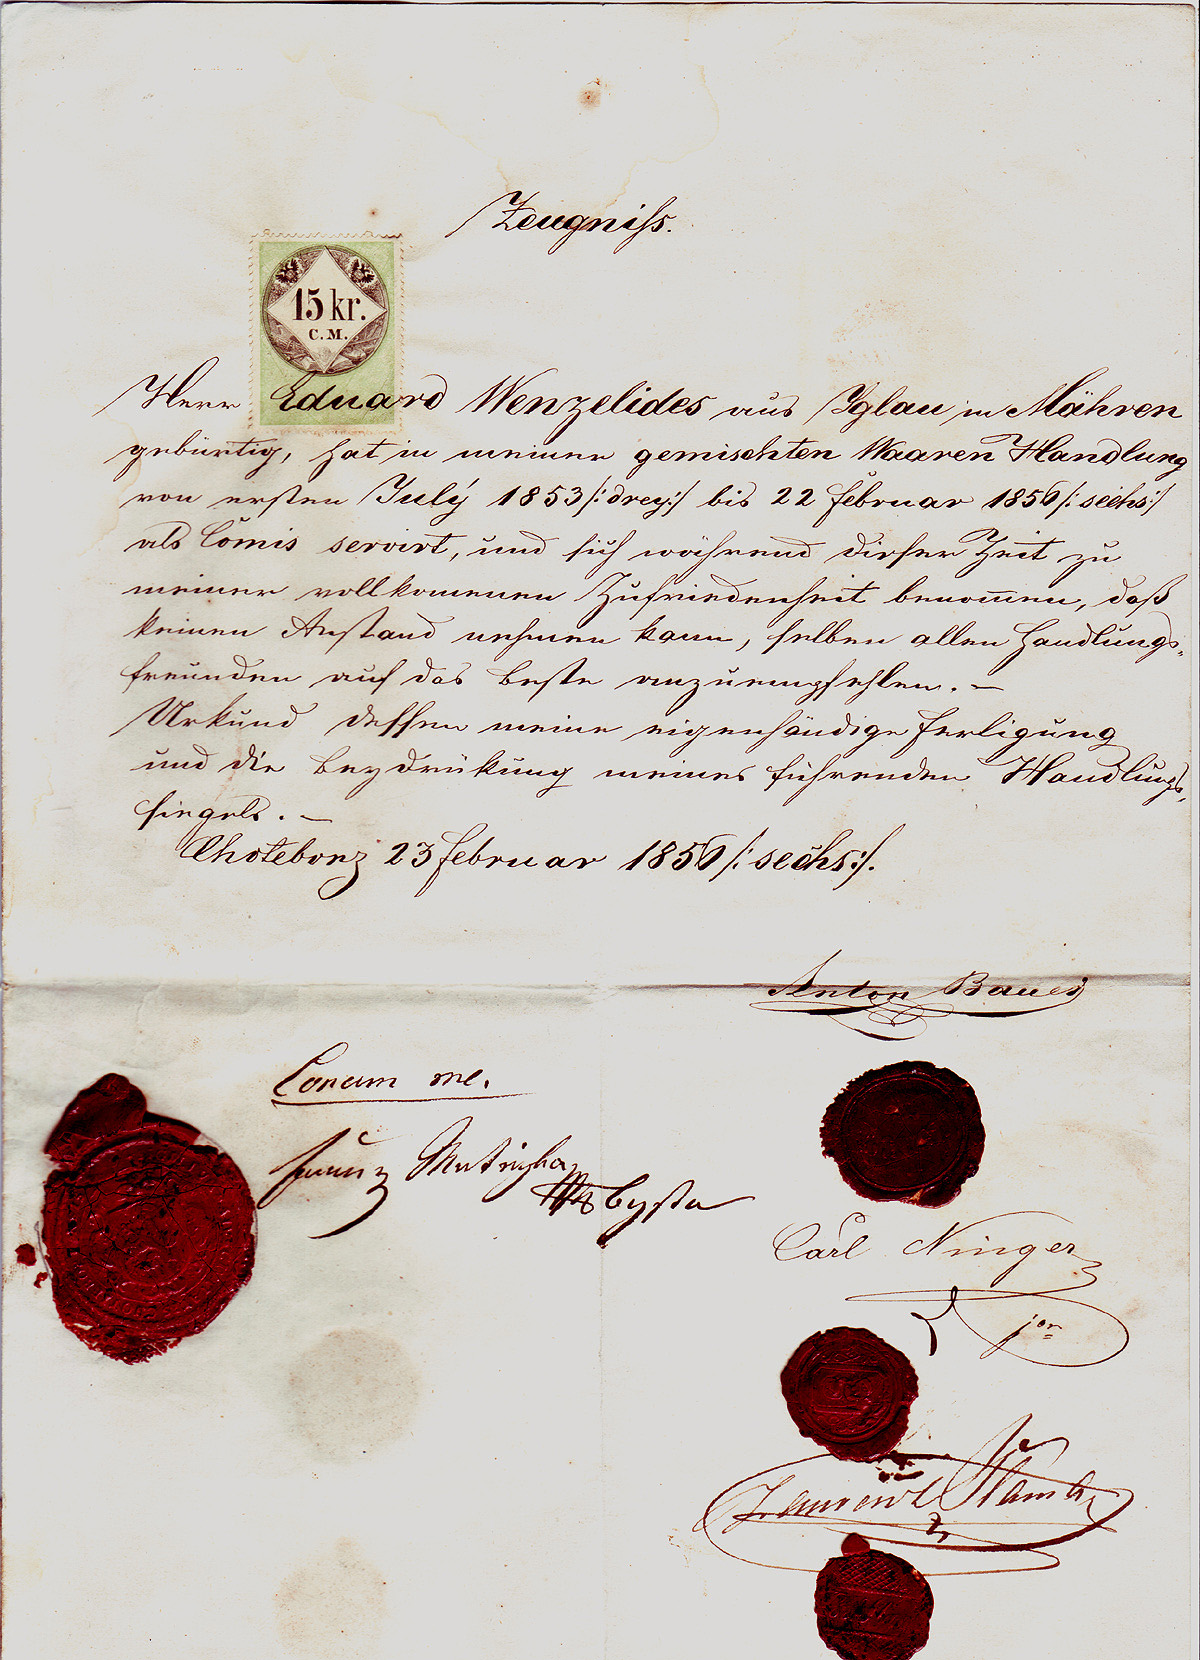 Zeugniss.
15 kr.
C.M.
Herr Eduard Wenzelides aus Iglau in Mähren
gebürtig, hat in meiner gemischten Waaren Handlung
von ersten July 1853 /: drey :/ bis 22 Februar 1856 /: sechs :/
als Comis servirt, und sich während dieser Zeit zu
meiner vollkomenen Zufriedenheit benommen, daß
keinen Anstand nehmen kann, selben allen Handlungs-
freunden auf das beste anzuempfehlen. –
Urkund dessen meine eigenhändige Fertigung
und die Beydrükung meines führenden Handlungs-
siegels. –
Choteborz 23 Februar 1856 /: sechs :/.
Anton Bauer
Coram me.
Franz
Carl Ninger
jor